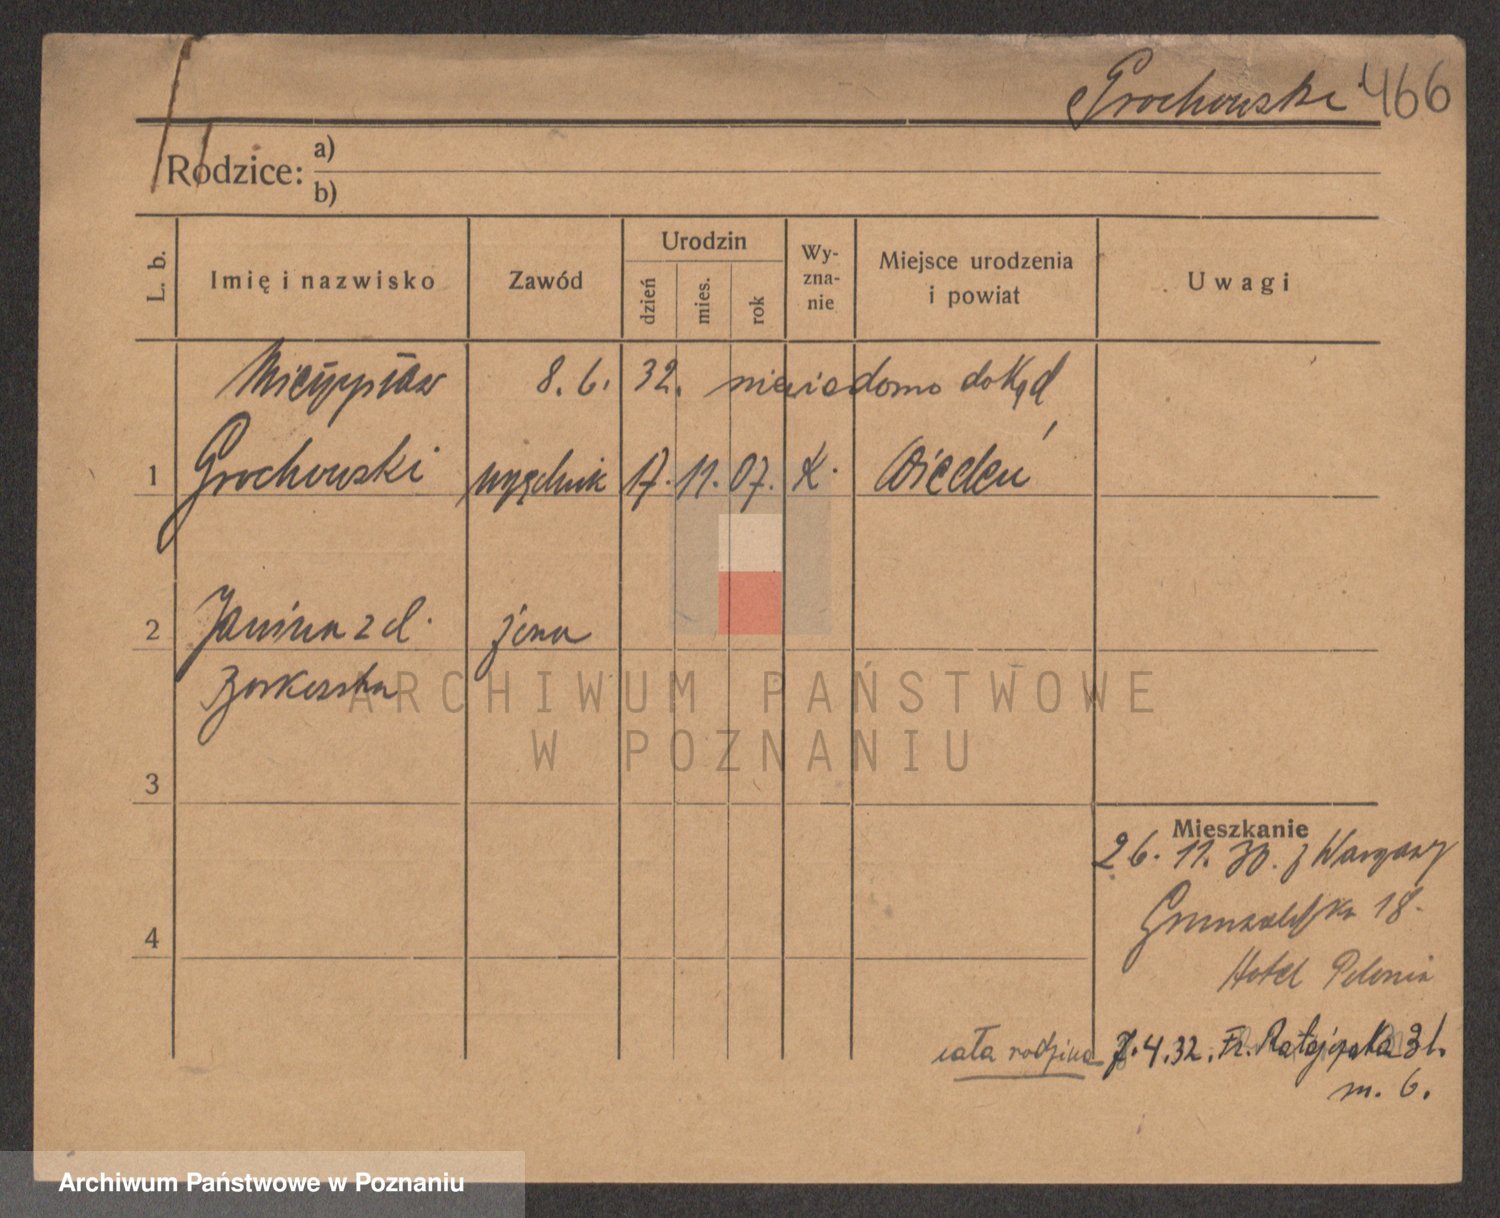 Grochowski 466
Rodzice: a)
b)
L. b. Imię i nazwisko Zawód Urodzin dzień mies. rok Wy-zna-nie Miejsce urodzenia i powiat Uwagi
Mieczysław 8.6. 32. niewiadomo dokąd
1 Grochowski urzędnik 17. 11. 07. K. Wiedeń
2 Janina z d. żona
3
4
ARCHIWUM PAŃSTWOWE
W POZNANIU
Mieszkanie
26. 11. 30. z Warszawy
Grunwaldzka 18.
Hotel Polonia
cała rodzina 7.4.32. Fr. Ratajczaka 31.
m. 6.
Archiwum Państwowe w Poznaniu